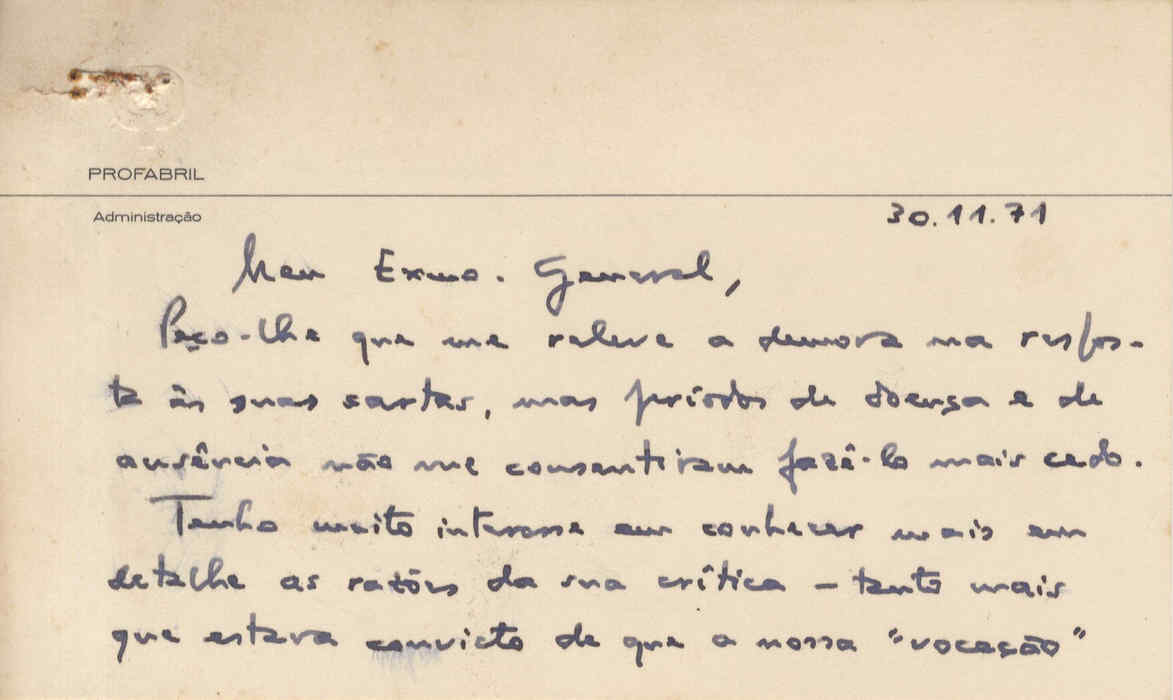 PROFABRIL
Administração
30.11.71
Meu Exmo. General,
Peço-lhe que me releve a demora na respos-
ta às suas cartas, mas períodos de doença e de
ausência não me consentiram fazê-lo mais cedo.
Tenho muito interesse em conhecer mais em
detalhe as razões da sua crítica – tanto mais
que estava convicto de que a nossa "vocação"